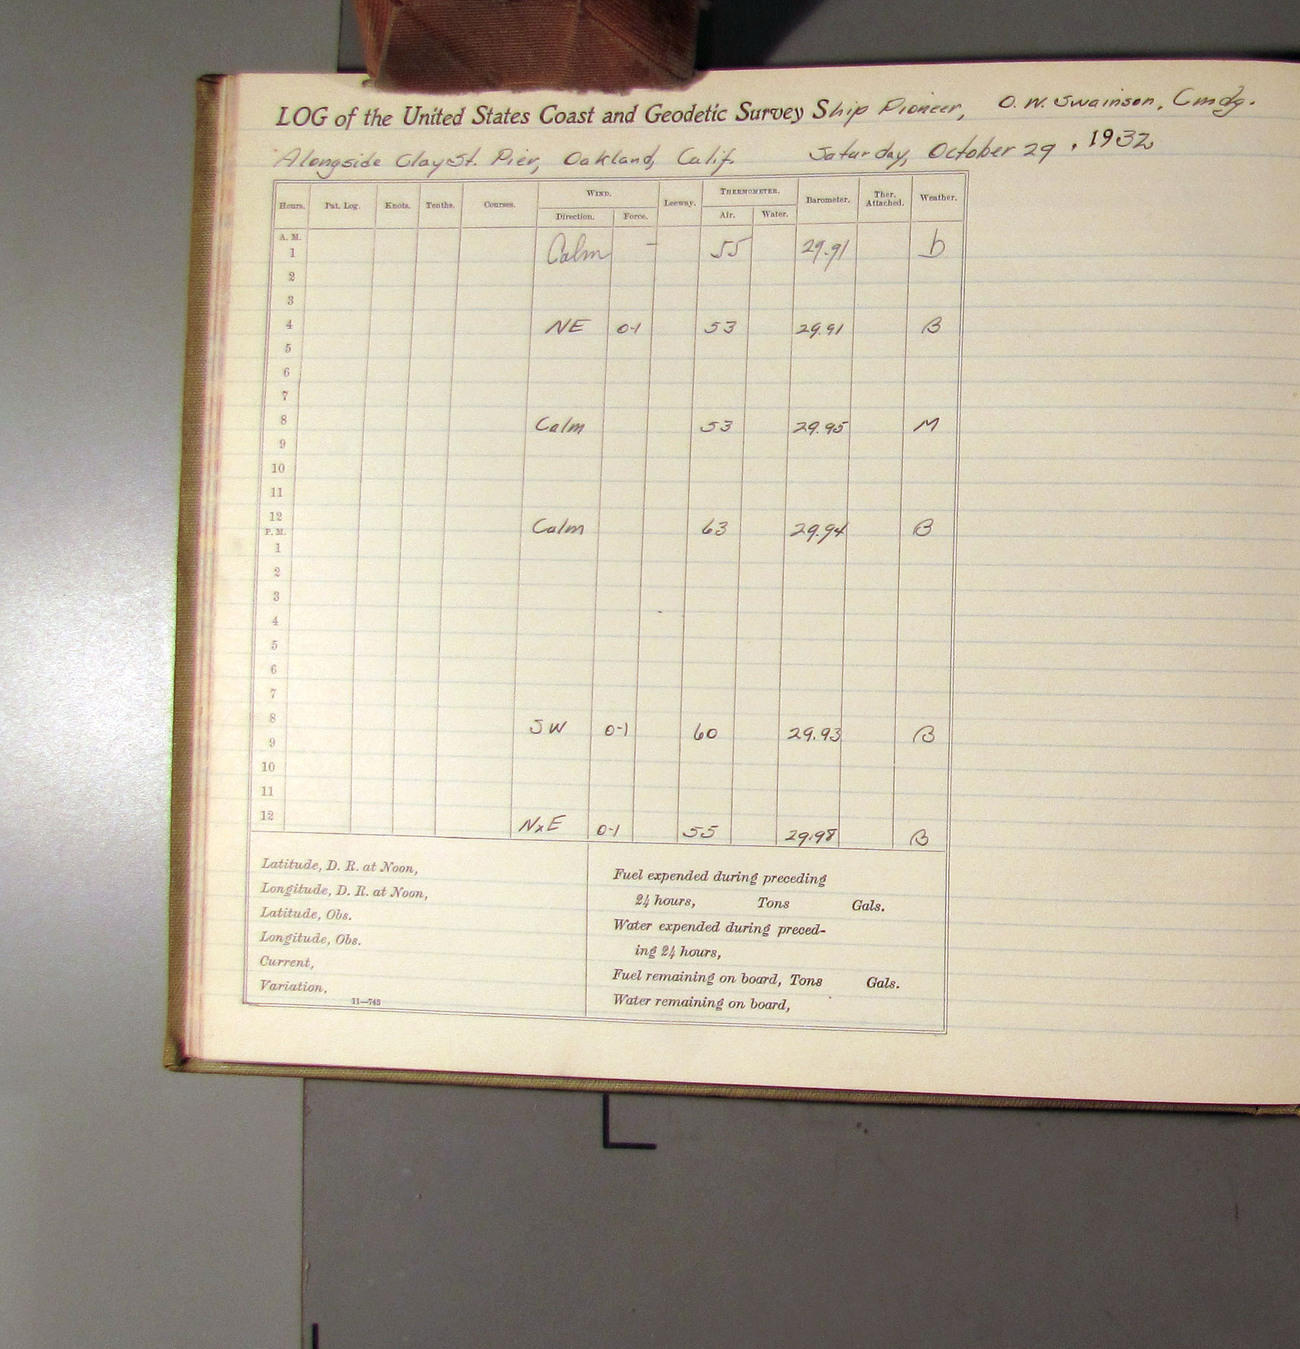 LOG of the United States Coast and Geodetic Survey Ship Pioneer, O. W. Swainson, Cmdg.
Alongside Clay St. Pier, Oakland, Calif. Saturday, October 29, 1932
Hours. Pat. Log. Knots. Tenths. Courses. WIND. Leeway. THERMOMETER. Barometer. Ther. Attached. Weather.
Direction. Force. Air. Water.
A. M.
1 Calm – 55 29.91 b
2
3
4 NE 0-1 53 29.91 B
5
6
7
8 Calm 53 29.95 M
9
10
11
12 Calm 63 29.94 B
P. M.
1
2
3
4
5
6
7
8 SW 0-1 60 29.93 B
9
10
11
12 NxE 0-1 55 29.98 B
Latitude, D. R. at Noon,
Longitude, D. R. at Noon,
Latitude, Obs.
Longitude, Obs.
Current,
Variation,
11—743
Fuel expended during preceding
24 hours, Tons Gals.
Water expended during preced-
ing 24 hours,
Fuel remaining on board, Tons Gals.
Water remaining on board,